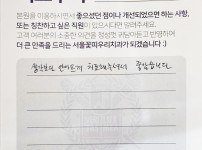 본원을 이용하시면서 좋으셨던 점이나 개선되었으면 하는 사항,
또는 칭찬하고 싶은 직원이 있으시다면 알려주세요.
고객 여러분의 소중한 의견을 정성껏 귀담아듣고 반영하여
더 큰 만족을 드리는 서울꽃피우리치과가 되겠습니다 :)
치료해주셔서 좋았습니다